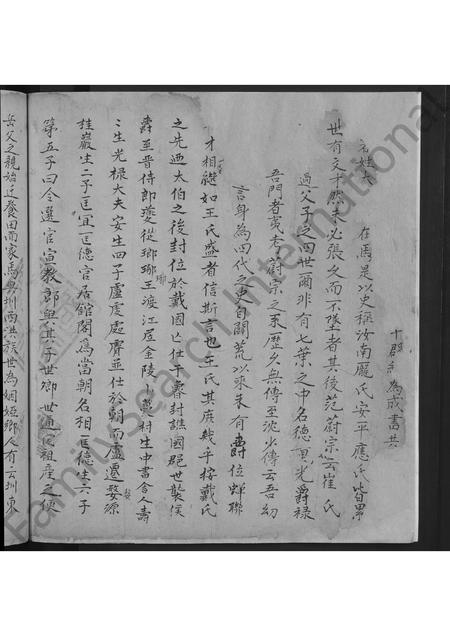 十郡乡為成書共
名姓大 在焉是以史稱汝南龐氏安平應氏皆累
世有文才然未必張文而不墜者其後范蔚宗云崔氏
過父子之四世爾非有七葉之中名德重光爵祿
吾門者黄老蔚宗之系歷久無傳至沈少傳云吾幼
言身為四代之史自開荒以來未有爵位蟬聯
才相繼如王氏盛者信斯言也王氏其庶幾乎按戴氏
之先迺太伯之後封位於戴國仕平晉封譙國郡世襲侯
爵至晉侍郎夔從瑯琊王渡江居金陵小蓂村生中書舍人壽
壽生光祿大夫安生四子盧虔處膚並仕於朝而盧遷婺源
桂巖生二子匡宜匡德官居館閣為當朝名相匡德生六子
第五子曰令選官宣教郎與其子世卿世通祖產之便
岳父之親始迁餐田而家焉與州西洪族世為姻婭鄉人有云州東
FamilySearch International